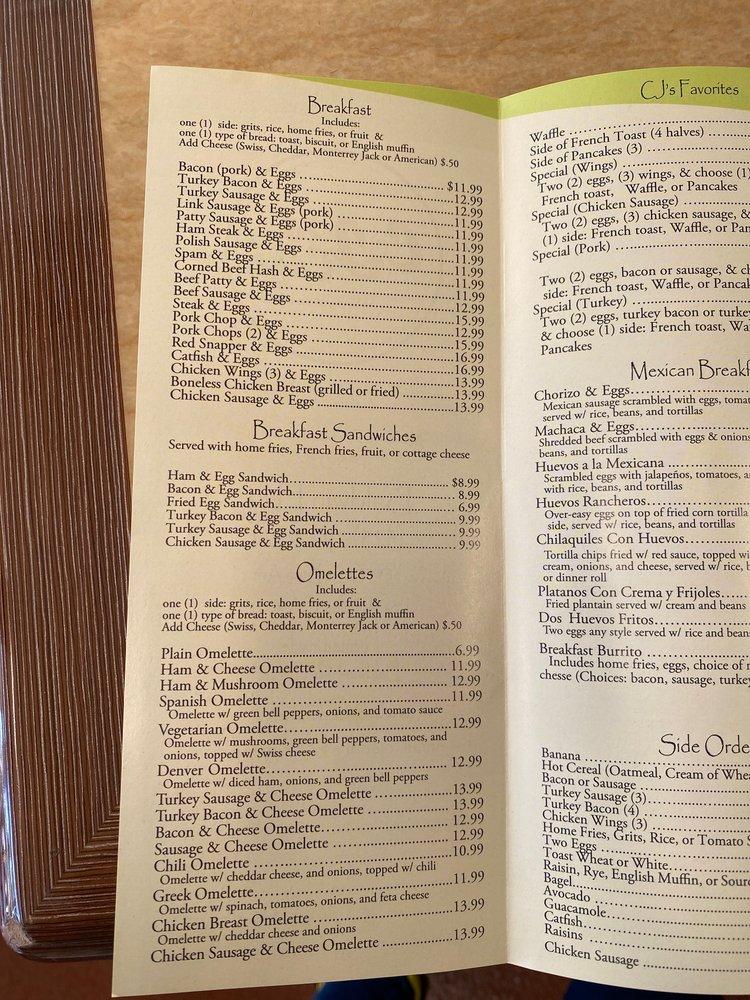 Breakfast
Includes:
one (1) side: grits, rice, home fries, or fruit &
one (1) type of bread: toast, biscuit, or English muffin
Add Cheese (Swiss, Cheddar, Monterrey Jack or American) $.50
Bacon (pork) & Eggs ........ $11.99
Turkey Bacon & Eggs ........ 12.99
Turkey Sausage & Eggs ........ 12.99
Link Sausage & Eggs (pork) ........ 11.99
Patty Sausage & Eggs (pork) ........ 11.99
Ham Steak & Eggs ........ 11.99
Polish Sausage & Eggs ........ 11.99
Spam & Eggs ........ 11.99
Corned Beef Hash & Eggs ........ 11.99
Beef Patty & Eggs ........ 11.99
Beef Sausage & Eggs ........ 12.99
Steak & Eggs ........ 15.99
Pork Chop & Eggs ........ 12.99
Pork Chops (2) & Eggs ........ 15.99
Red Snapper & Eggs ........ 16.99
Catfish & Eggs ........ 16.99
Chicken Wings (3) & Eggs ........ 13.99
Boneless Chicken Breast (grilled or fried) ........ 13.99
Chicken Sausage & Eggs ........ 13.99
Breakfast Sandwiches
Served with home fries, French fries, fruit, or cottage cheese
Ham & Egg Sandwich ........ $8.99
Bacon & Egg Sandwich ........ 8.99
Fried Egg Sandwich ........ 6.99
Turkey Bacon & Egg Sandwich ........ 9.99
Turkey Sausage & Egg Sandwich ........ 9.99
Chicken Sausage & Egg Sandwich ........ 9.99
Omelettes
Includes:
one (1) side: grits, rice, home fries, or fruit &
one (1) type of bread: toast, biscuit, or English muffin
Add Cheese (Swiss, Cheddar, Monterrey Jack or American) $.50
Plain Omelette ........ 6.99
Ham & Cheese Omelette ........ 11.99
Ham & Mushroom Omelette ........ 12.99
Spanish Omelette ........ 11.99
Omelette w/ green bell peppers, onions, and tomato sauce
Vegetarian Omelette ........ 12.99
Omelette w/ mushrooms, green bell peppers, tomatoes, and
onions, topped w/ Swiss cheese
Denver Omelette ........ 12.99
Omelette w/ diced ham, onions, and green bell peppers
Turkey Sausage & Cheese Omelette ........ 13.99
Turkey Bacon & Cheese Omelette ........ 13.99
Bacon & Cheese Omelette ........ 12.99
Sausage & Cheese Omelette ........ 12.99
Chili Omelette ........ 10.99
Omelette w/ cheddar cheese, and onions, topped w/ chili
Greek Omelette ........ 11.99
Omelette w/ spinach, tomatoes, onions, and feta cheese
Chicken Breast Omelette ........ 13.99
Omelette w/ cheddar cheese and onions
Chicken Sausage & Cheese Omelette ........ 13.99
CJ's Favorites
Waffle ........
Side of French Toast (4 halves) ........
Side of Pancakes (3) ........
Special (Wings) ........
Two (2) eggs, (3) wings, & choose (1)
French toast, Waffle, or Pancakes
Special (Chicken Sausage) ........
Two (2) eggs, (3) chicken sausage, &
(1) side: French toast, Waffle, or Pan
Special (Pork) ........
Two (2) eggs, bacon or sausage, & ch
side: French toast, Waffle, or Pancak
Special (Turkey) ........
Two (2) eggs, turkey bacon or turkey
& choose (1) side: French toast, Wa
Pancakes
Mexican Breakf
Chorizo & Eggs ........
Mexican sausage scrambled with eggs, tomat
served w/ rice, beans, and tortillas
Machaca & Eggs ........
Shredded beef scrambled with eggs & onions
beans, and tortillas
Huevos a la Mexicana ........
Scrambled eggs with jalapeños, tomatoes, a
with rice, beans, and tortillas
Huevos Rancheros ........
Over-easy eggs on top of fried corn tortilla
side, served w/ rice, beans, and tortillas
Chilaquiles Con Huevos ........
Tortilla chips fried w/ red sauce, topped wi
cream, onions, and cheese, served w/ rice, b
or dinner roll
Platanos Con Crema y Frijoles ........
Fried plantain served w/ cream and beans
Dos Huevos Fritos ........
Two eggs any style served w/ rice and bean
Breakfast Burrito ........
Includes home fries, eggs, choice of m
chesse (Choices: bacon, sausage, turkey
Side Orde
Banana ........
Hot Cereal (Oatmeal, Cream of Whea
Bacon or Sausage ........
Turkey Sausage (3) ........
Turkey Bacon (4) ........
Chicken Wings (3) ........
Home Fries, Grits, Rice, or Tomato S
Two Eggs ........
Toast Wheat or White ........
Raisin, Rye, English Muffin, or Sour
Bagel ........
Avocado ........
Guacamole ........
Catfish ........
Raisins ........
Chicken Sausage ........